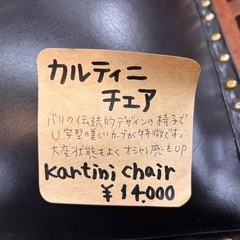 カルティニ
チェア
バリの伝統的デザインの椅子で
U字型の美しいカーブが特徴です。
大変状態もよく オシャレ度もUP
kartini chair
¥14.000